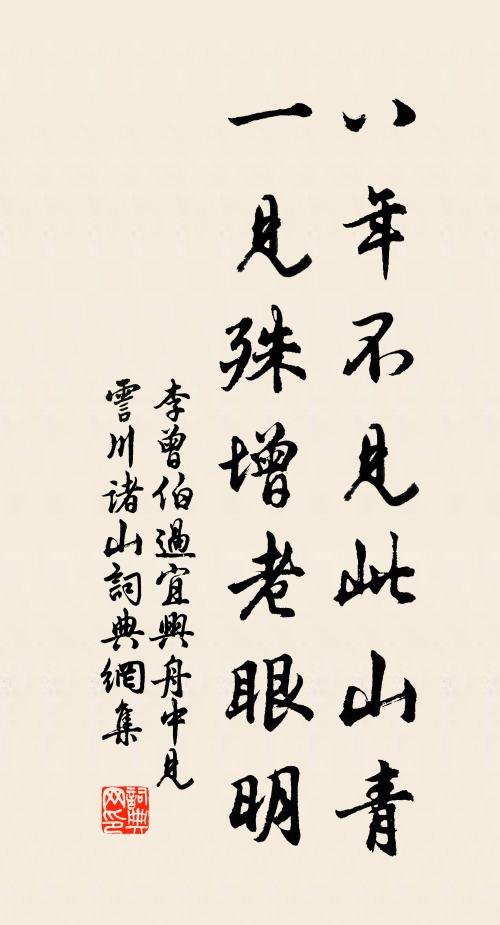 八年不见此山青
一见殊增老眼明
李曾伯過宜興舟中见
霅川诸山詞典網集
詞典网印